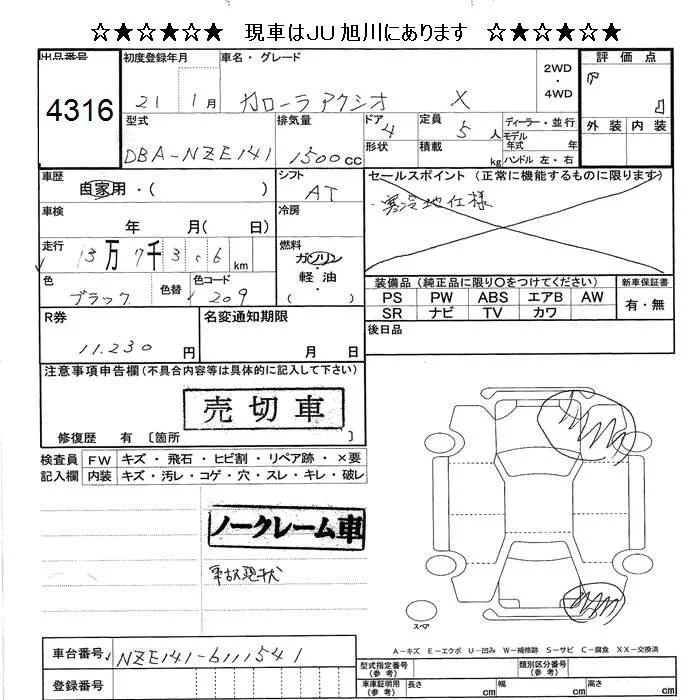 ☆★☆★☆★☆ 現車はJU旭川にあります ☆★☆★☆★☆
出品番号 初度登録年月 車名・グレード 2WD・4WD 評価点
4316 21 1月 カローラアクシオ X
型式 排気量 ドア 4 定員 5人 ディーラー・並行 外装 内装
DBA-NZE141 1500cc 形状 積載 kg モデル年式 年 ハンドル 左・右
車歴 自家用・( ) シフト AT セールスポイント(正常に機能するものに限ります)
車検 年 月( 日) 冷房 寒冷地仕様
走行 13万7千306km 燃料 ガソリン・軽油( )
色 ブラック 色替 色コード 209 装備品(純正品に限り○をつけてください) 新車保証書
PS PW ABS エアB AW 有・無
SR ナビ TV カワ
R券 11.230円 名変通知期限 月 日 後日品
注意事項申告欄(不具合内容等は具体的に記入して下さい)
売切車
修復歴 有 〔箇所 〕
検査員 FW キズ・飛石・ヒビ割・リペア跡・×要
記入欄 内装 キズ・汚レ・コゲ・穴・スレ・キレ・破レ
ノークレーム車
事故現状
スペア
A-キズ E-エクボ U-凹み W-補修跡 S-サビ C-腐食 XX-交換済
車台番号 NZE141-6111541
型式指定番号(参考) 類別区分番号(参考)
登録番号 車庫証明用(参考) 長さ cm 幅 cm 高さ cm